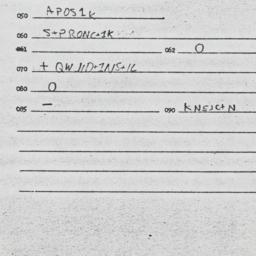 050 APOS1K
060 S+PRONC+1K
061 062 O
070 + QWND+INS+1L
080 O
085 — 090 KNSJC+N